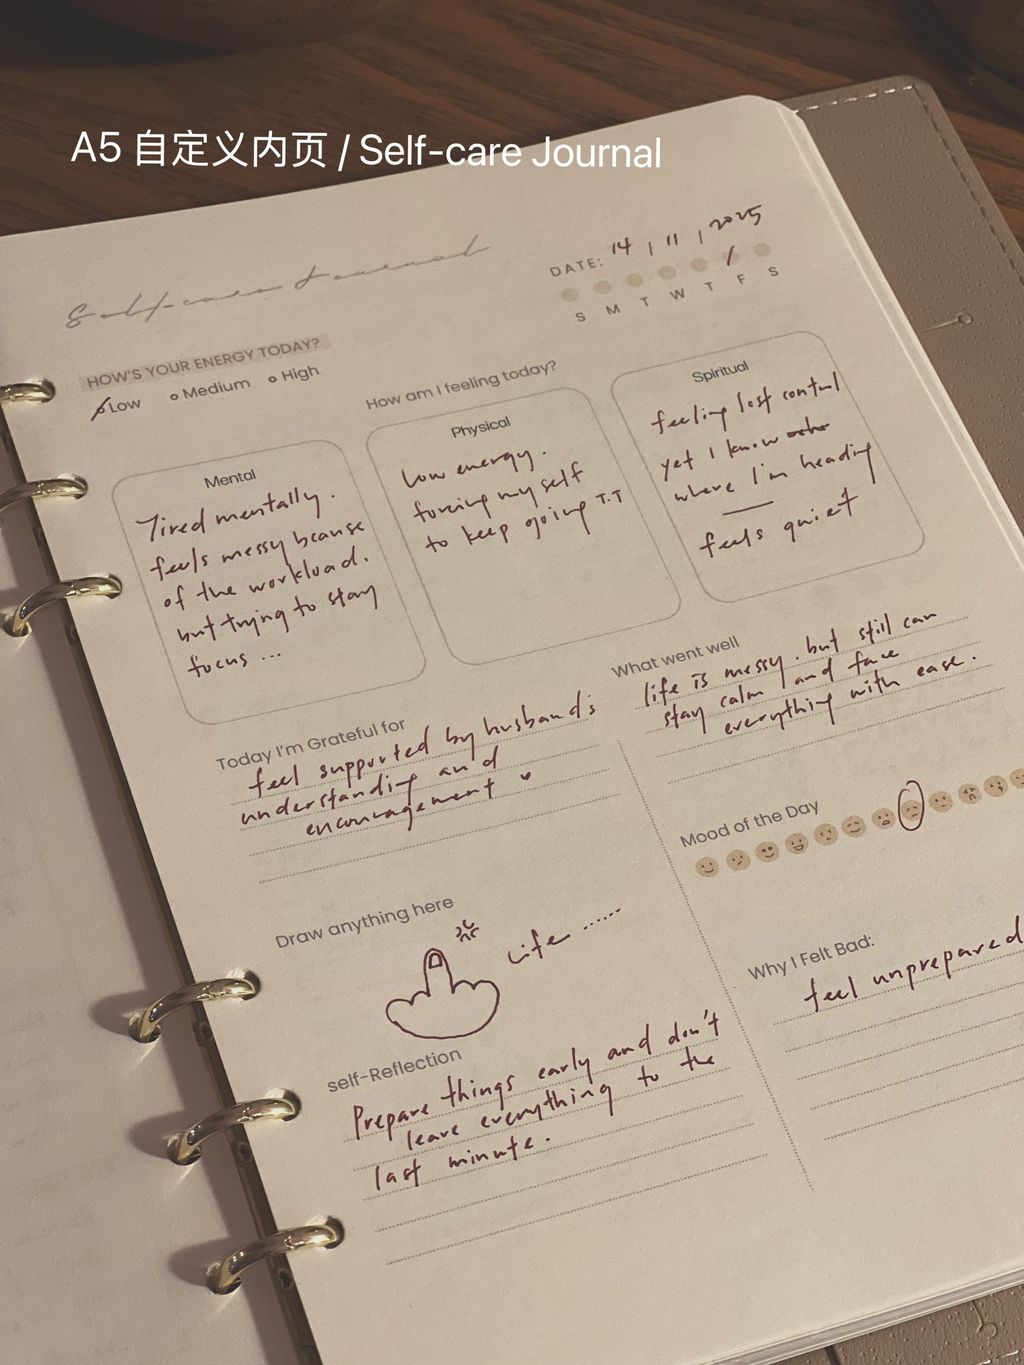 A5 自定义内页 / Self-care Journal
Self-care Journal
DATE: 14 / 11 / 2025
S M T W T F S
HOW'S YOUR ENERGY TODAY?
Low Medium High
How am I feeling today?
Mental
Tired mentally.
feels messy because
of the workload.
but trying to stay
focus ...
Physical
low energy.
forcing myself
to keep going T.T
Spiritual
feeling lost control
yet I know
where I'm heading
feels quiet
Today I'm Grateful for
feel supported by husband's
understanding and
encouragement
What went well
life is messy. but still can
stay calm and face
everything with ease.
Mood of the Day
Draw anything here
Life ......
Why I Felt Bad:
feel unprepared
self-Reflection
Prepare things early and don't
leave everything to the
last minute.